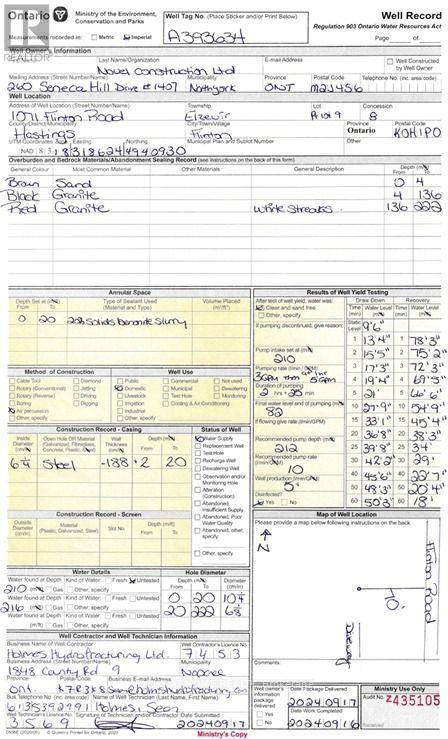 Ontario
Ministry of the Environment,
Conservation and Parks
Well Tag No. (Place Sticker and/or Print Below)
A393634
Well Record
Regulation 903 Ontario Water Resources Act
Measurements recorded in: Metric Imperial
Page of
REALTOR
Well Owner's Information
Last Name/Organization
Novel Construction Ltd
E-mail Address
Well Constructed by Well Owner
Mailing Address (Street Number/Name)
260 Seneca Hill Drive #1407
Municipality
Northyork
Province
ONT
Postal Code
M2J4S6
Telephone No. (inc. area code)
Well Location
Address of Well Location (Street Number/Name)
1071 Flinton Road
Township
Elzevir
Lot
Concession
8
County/District/Municipality
Hastings
City/Town/Village
Flinton
Province
Ontario
Postal Code
K0H1P0
UTM Coordinates Zone Easting Northing
NAD 83 18 318624 4940930
Municipal Plan and Sublot Number
Other
Overburden and Bedrock Materials/Abandonment Sealing Record (see instructions on the back of this form)
General Colour Most Common Material Other Materials General Description Depth (m/ft) From To
Brown Sand 0 4
Black Granite 4 136
Red Granite White Streaks. 136 222
Annular Space
Depth Set at (m/ft) From To
Type of Sealant Used (Material and Type)
Volume Placed (m³/ft³)
0 20 20% Solids Bentonite Slurry
Method of Construction
Cable Tool Diamond
Rotary (Conventional) Jetting
Rotary (Reverse) Driving
Boring Digging
Air percussion
Other, specify
Well Use
Public Commercial Not used
Domestic Municipal Dewatering
Livestock Test Hole Monitoring
Irrigation Cooling & Air Conditioning
Industrial
Other, specify
Construction Record - Casing
Inside Diameter (cm/in)
Open Hole OR Material (Galvanized, Fibreglass, Concrete, Plastic, Steel)
Wall Thickness (cm/in)
Depth (m/ft) From To
6¼ Steel .188 +2 20
Status of Well
Water Supply
Replacement Well
Test Hole
Recharge Well
Dewatering Well
Observation and/or Monitoring Hole
Alteration (Construction)
Abandoned, Insufficient Supply
Abandoned, Poor Water Quality
Abandoned, other, specify
Other, specify
Construction Record - Screen
Outside Diameter (cm/in)
Material (Plastic, Galvanized, Steel)
Slot No.
Depth (m/ft) From To
Water Details
Water found at Depth Kind of Water: Fresh Untested
210 (m/ft) Gas Other, specify
Water found at Depth Kind of Water: Fresh Untested
216 (m/ft) Gas Other, specify
Water found at Depth Kind of Water: Fresh Untested
(m/ft) Gas Other, specify
Hole Diameter
Depth (m/ft) From To
Diameter (cm/in)
0 20
20 222
Results of Well Yield Testing
After test of well yield, water was:
Clear and sand free
Other, specify
If pumping discontinued, give reason:
Pump intake set at (m/ft)
210
Pumping rate (l/min / GPM)
Duration of pumping
2 hrs + 25 min
Final water level end of pumping (m/ft)
82
If flowing give rate (l/min/GPM)
Recommended pump depth (m/ft)
212
Recommended pump rate (l/min/GPM)
10
Well production (l/min/GPM)
5
Disinfected?
Yes No
Draw Down Recovery
Time (min) Water Level (m/ft) Time (min) Water Level (m/ft)
Static Level 9'6"
1 13'4" 1 78'3"
2 15'5" 2 75'2"
3 17'3" 3 72'3"
4 19'4" 4 69'5"
5 21' 5 66'6"
10 27'9" 10 54'9"
15 33'1" 15 45'4"
20 36'8" 20 38'3"
25 39'8" 25 34'
30 42'2" 30 29'
40 45'6" 40 22'7"
50 48'3" 50 20'4"
60 50'3" 60 18'
Map of Well Location
Please provide a map below following instructions on the back.
N
Flinton Road
Comments:
Well Contractor and Well Technician Information
Business Name of Well Contractor
Holmes Hydrofracturing Ltd.
Well Contractor's Licence No.
7453
Business Address (Street Number/Name)
1848 County Rd 9
Municipality
Napanee
Province
Ont
Postal Code
K7R3K8
Business E-mail Address
Bus. Telephone No. (inc. area code)
6135392991
Name of Well Technician (Last Name, First Name)
Holmes, Sean
Well Technician's Licence No.
3569
Signature of Technician and/or Contractor
Date Submitted
20240917
Well owner's information package delivered
Yes
No
Date Package Delivered
20240917
Date Work Completed
20240916
Ministry Use Only
Audit No.
Z435105
0506E (2020/06)
© Queen's Printer for Ontario, 2020
Ministry's Copy